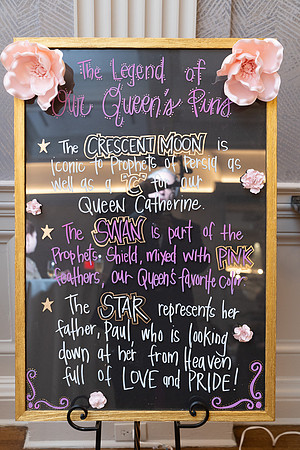 The Legend of
Our Queen's Pins
The CRESCENT MOON is
iconic to Prophets of Persia as
well as a "C" for our
Queen Catherine.
The SWAN is part of the
Prophets' Shield, mixed with PINK
feathers, our Queen's favorite color
The STAR represents her
father, Paul, who is looking
down at her from Heaven
full of LOVE and PRIDE!